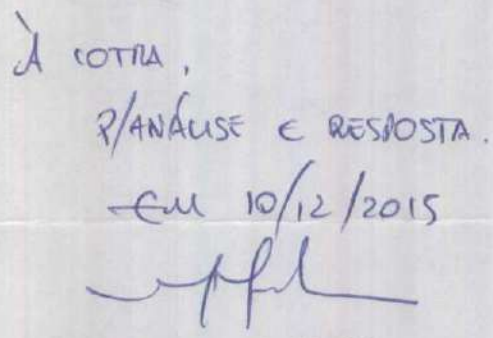 À COTRA,
P/ANÁLISE E RESPOSTA.
EM 10/12/2015